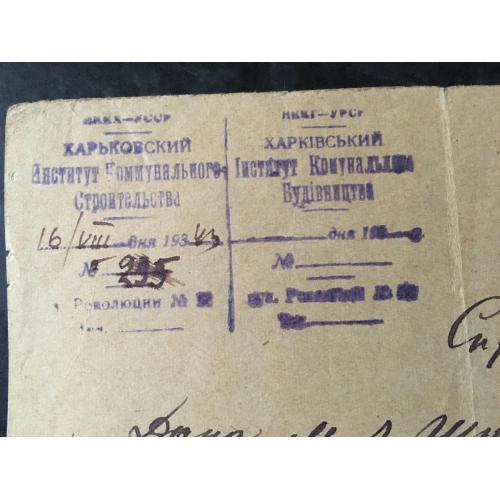 НККХ—УССР
ХАРЬКОВСКИЙ
Институт Коммунального
Строительства
16/VIII дня 193 43
№ 295
Революции №
Тел.
НККГ—УРСР
ХАРКІВСЬКИЙ
Інститут Комунального
Будівництва
дня 193
№
вул. Революції №
Тел.
Дана